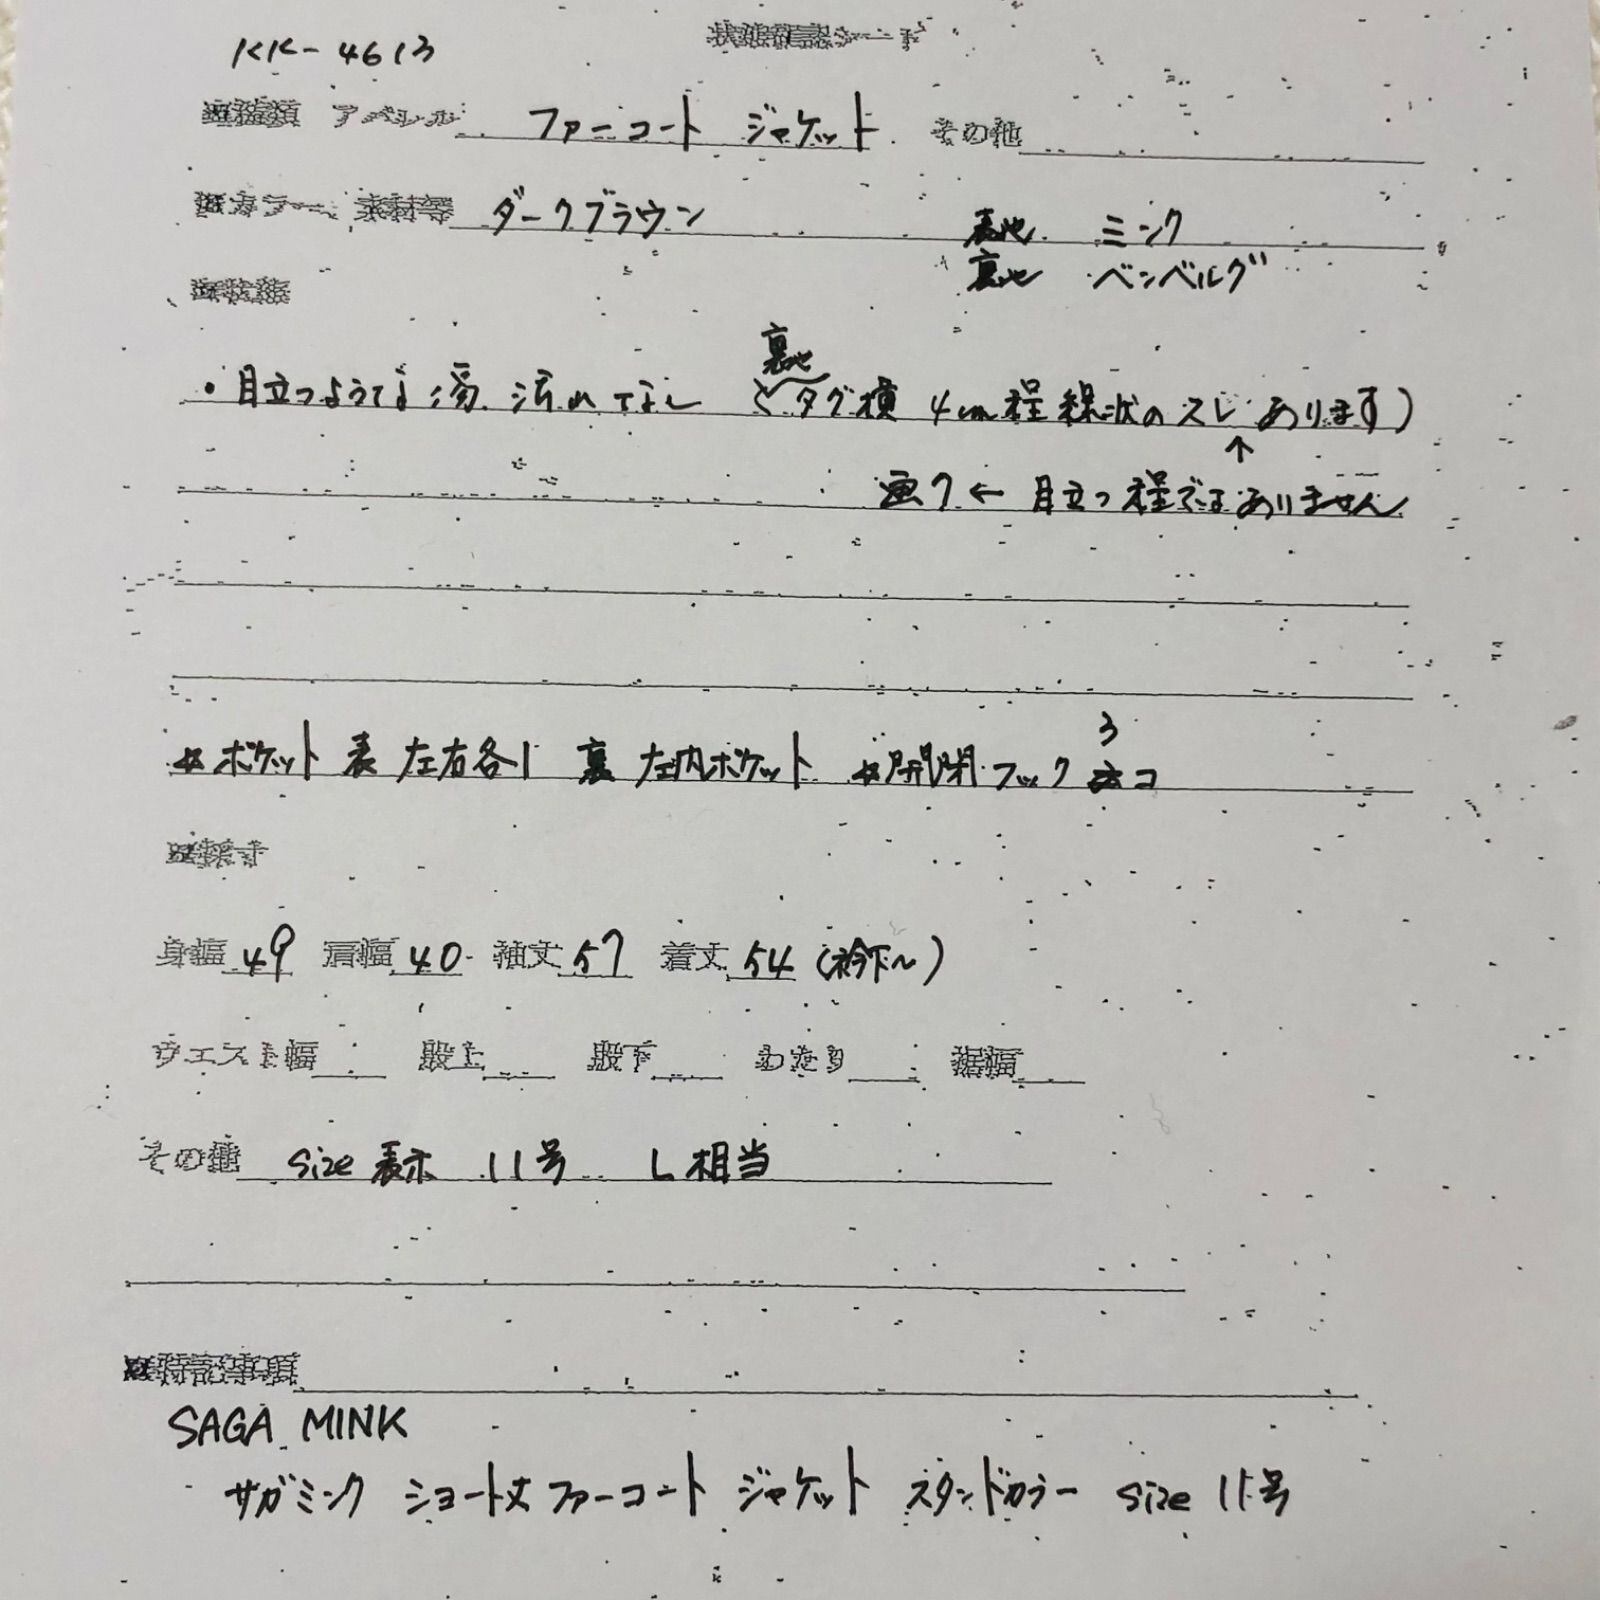 KK-4613
状態確認シート
■種類 アパレル ファーコート ジャケット その他
■カラー、素材等 ダークブラウン 表地 ミンク
裏地 ベンベルグ
■状態
裏地
・目立つような傷、汚れなし (タグ横 4cm程線状のスレあります)
↑
画7 ← 目立つ程ではありません
3
☆ポケット 表 左右各1 裏 左内ポケット ☆開閉 フック コ
■採寸
身幅 49 肩幅 40 袖丈 57 着丈 54 (衿下～)
ウエスト幅 股上 股下 わたり 裾幅
その他 size表示 11号 L相当
■特記事項
SAGA MINK
サガミンク ショート丈ファーコート ジャケット スタンドカラー size 11号